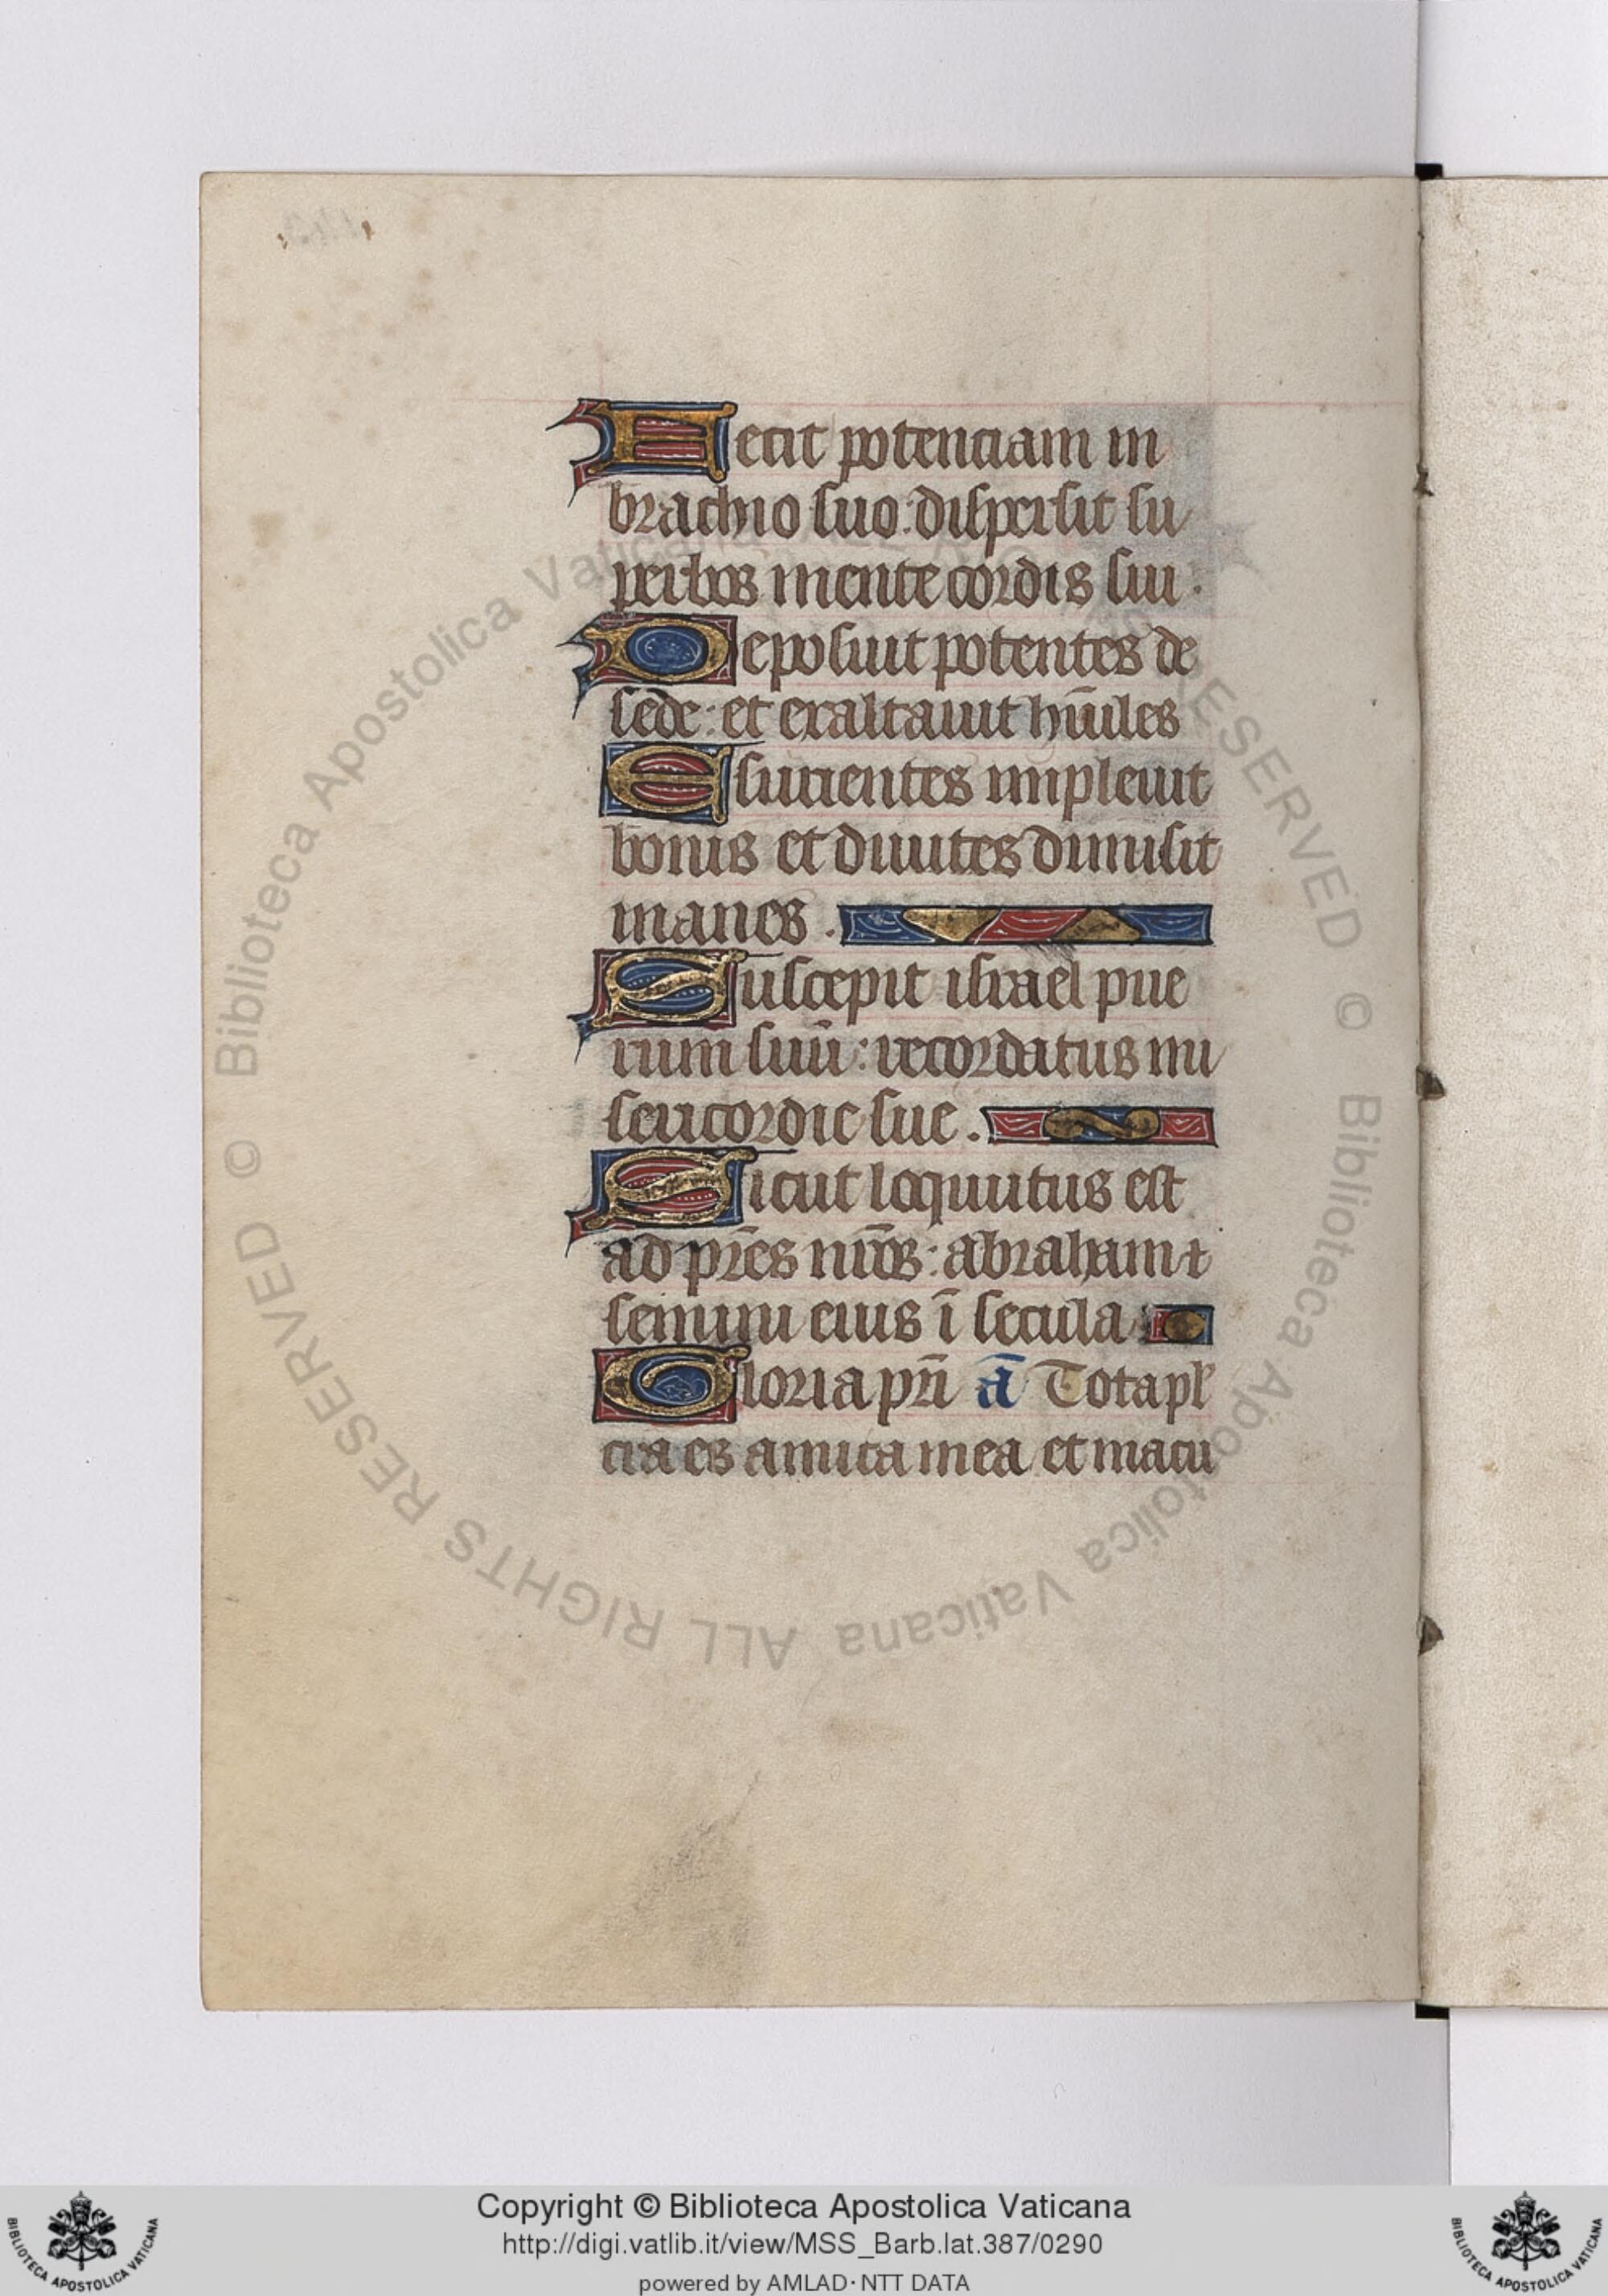 Fecit potenciam in
brachio suo: dispersit su
perbos mente cordis sui.
Deposuit potentes de
sede: et exaltauit hūiles
Esurientes impleuit
bonis et diuites dimisit
inanes.
Suscepit israel pue
rum suū: recordatus mi
sericordie sue.
Sicut loquutus est
ad pr̄es nr̄os: abraham ⁊
semini eius ī secula
Gloria pr̄i ā Tota pl
cra es amica mea et macu
© Biblioteca Apostolica Vaticana ALL RIGHTS RESERVED © Biblioteca Apostolica Vaticana ALL RIGHTS RESERVED
Copyright © Biblioteca Apostolica Vaticana
http://digi.vatlib.it/view/MSS_Barb.lat.387/0290
powered by AMLAD·NTT DATA
BIBLIOTECA APOSTOLICA VATICANA
BIBLIOTECA APOSTOLICA VATICANA